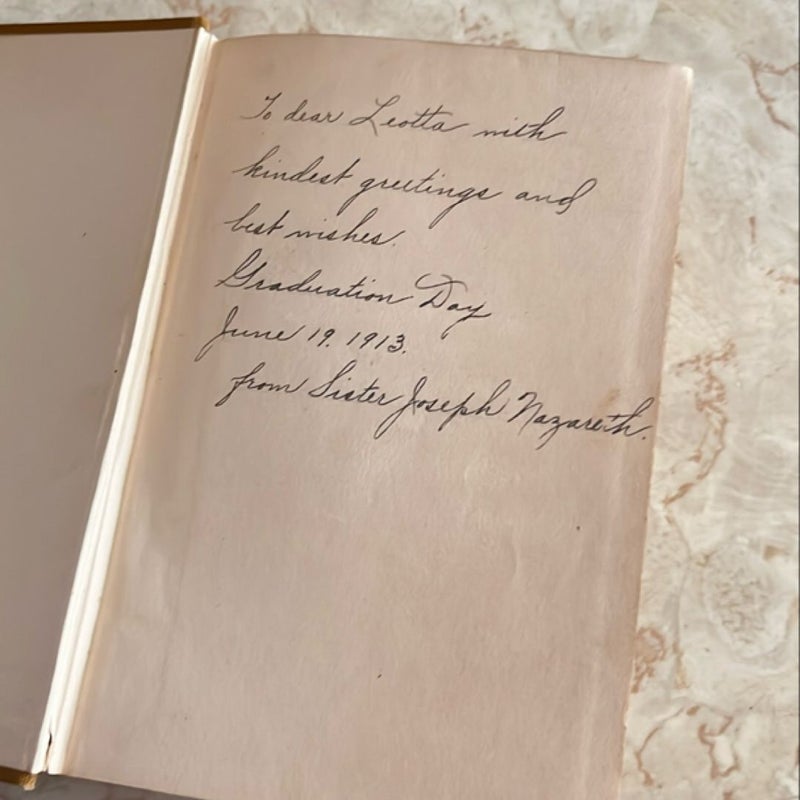 To dear Leotta with
kindest greetings and
best wishes.
Graduation Day
June 19. 1913.
from Sister Joseph Nazareth.